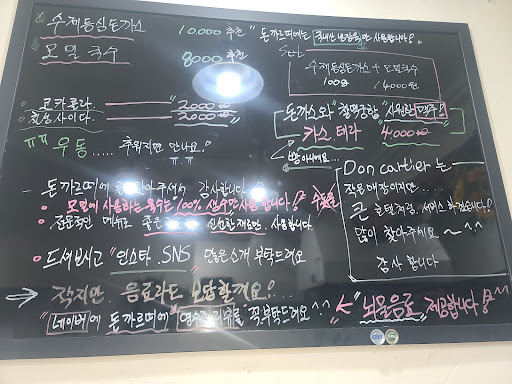 수제등심돈가스 10,000 추천
모밀국수 8000 추천
"돈까르띠에는 국내산 냉장육만 사용합니다!
Set
수제등심돈가스 + 모밀국수
100g 14000원
코카콜라. 2000
칠성사이다. 2000
돈까스와 "찰떡궁합" 시원한 맥주!
카스. 테라 4000
ㅠㅠ 우동..... 추워지면 만나요!
ㅠ.ㅠ
돈까르띠에를 찾아주셔서 감사합니다
모밀에 사용하는 육수는 100% 사용합니다!
좋은 신선한 재료만 사용합니다.
드셔보시고 "인스타.SNS" 많은 소개 부탁드려요
Don cartier 는
작은매장이지만....
큰 서비스 하겠습니다!
많이 찾아주세요 ~ ^^
감사 합니다
→ 작지만 음료라도 보답할게요!...
"네이버에 돈까르띠에" 영수증리뷰를 꼭부탁드려요^^
"뇌물음료" 제공합니다! ^^